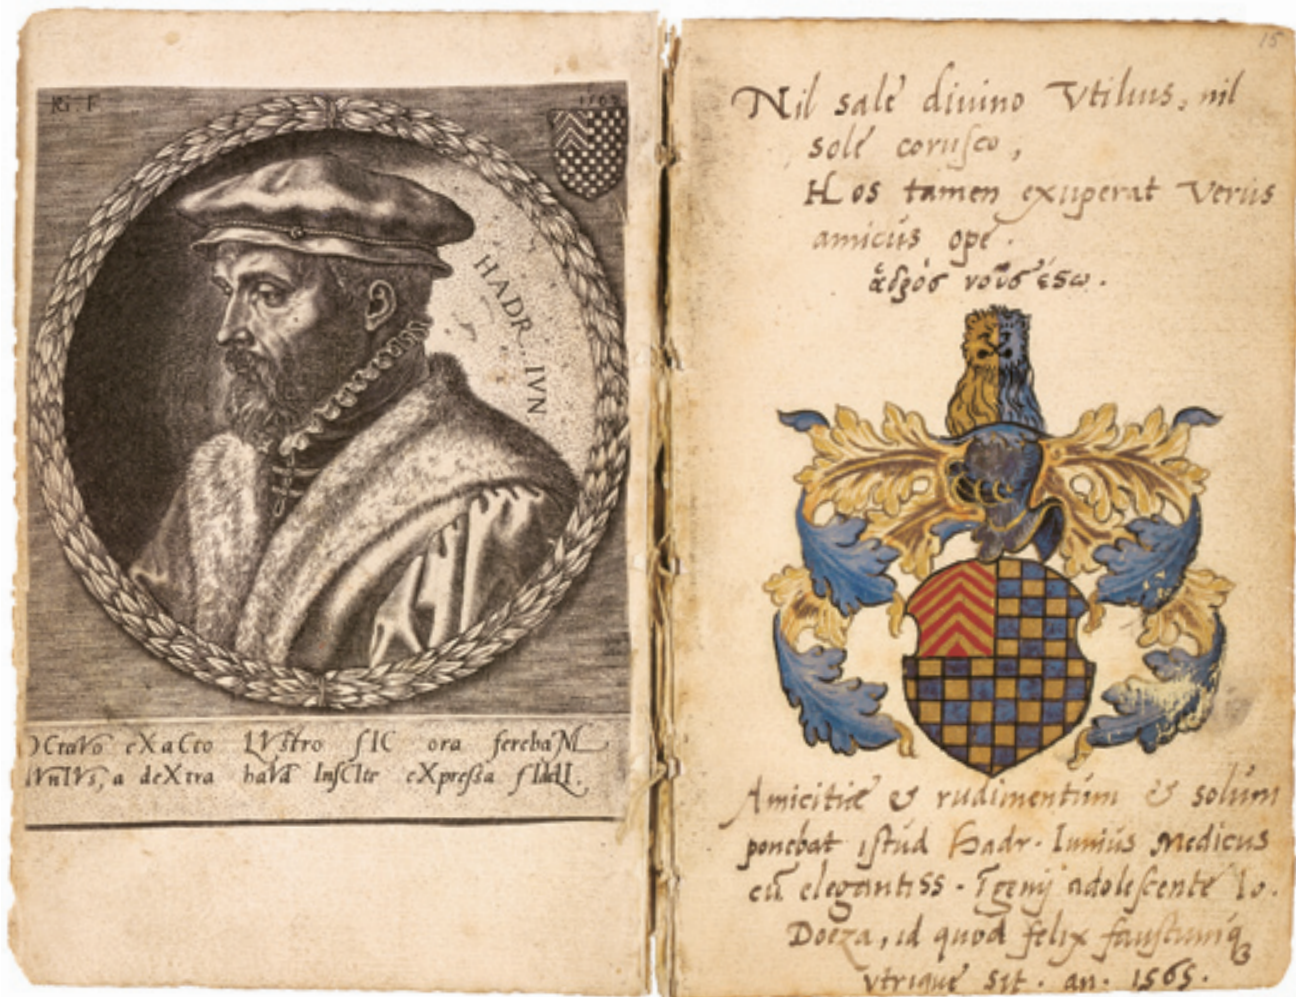 HADR. IVN
OCtaVo eXaCto LVstro sIC ora ferebaM
IVnIVs, a deXtra haVd InsCIte eXpressa
15
Nil sale diuino Vtilius, nil
sole corusco,
Hos tamen exuperat Verus
amicus ope.
Amicitiæ & rudimentum & solum
ponebat istud Hadr. Iunius Medicus
cū elegantiss. īgenij adolescente Io.
Doeza, id quod felix faustumq₃
vtrique sit. an. 1565.